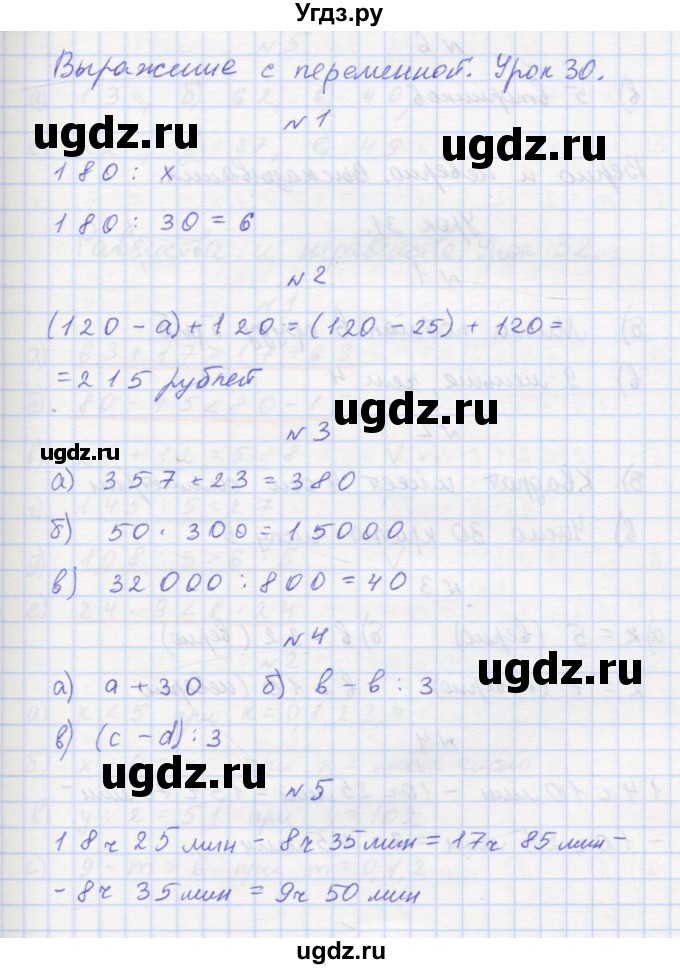 Угдз.ру
Выражение с переменной. Урок 30.
№1
ugdz.ru
ugdz.ru
180 : x
180 : 30 = 6
№2
(120 - a) + 120 = (120 - 25) + 120 =
= 215 рублей
ugdz.ru
№3
ugdz.ru
а) 357 + 23 = 380
б) 50 · 300 = 15000
в) 32000 : 800 = 40
№4
ugdz.ru
а) a + 30 б) b - b : 3
в) (c - d) : 3
ugdz.ru
№5
18ч 25мин - 8ч 35мин = 17ч 85мин -
- 8ч 35мин = 9ч 50мин
ugdz.ru
ugdz.ru